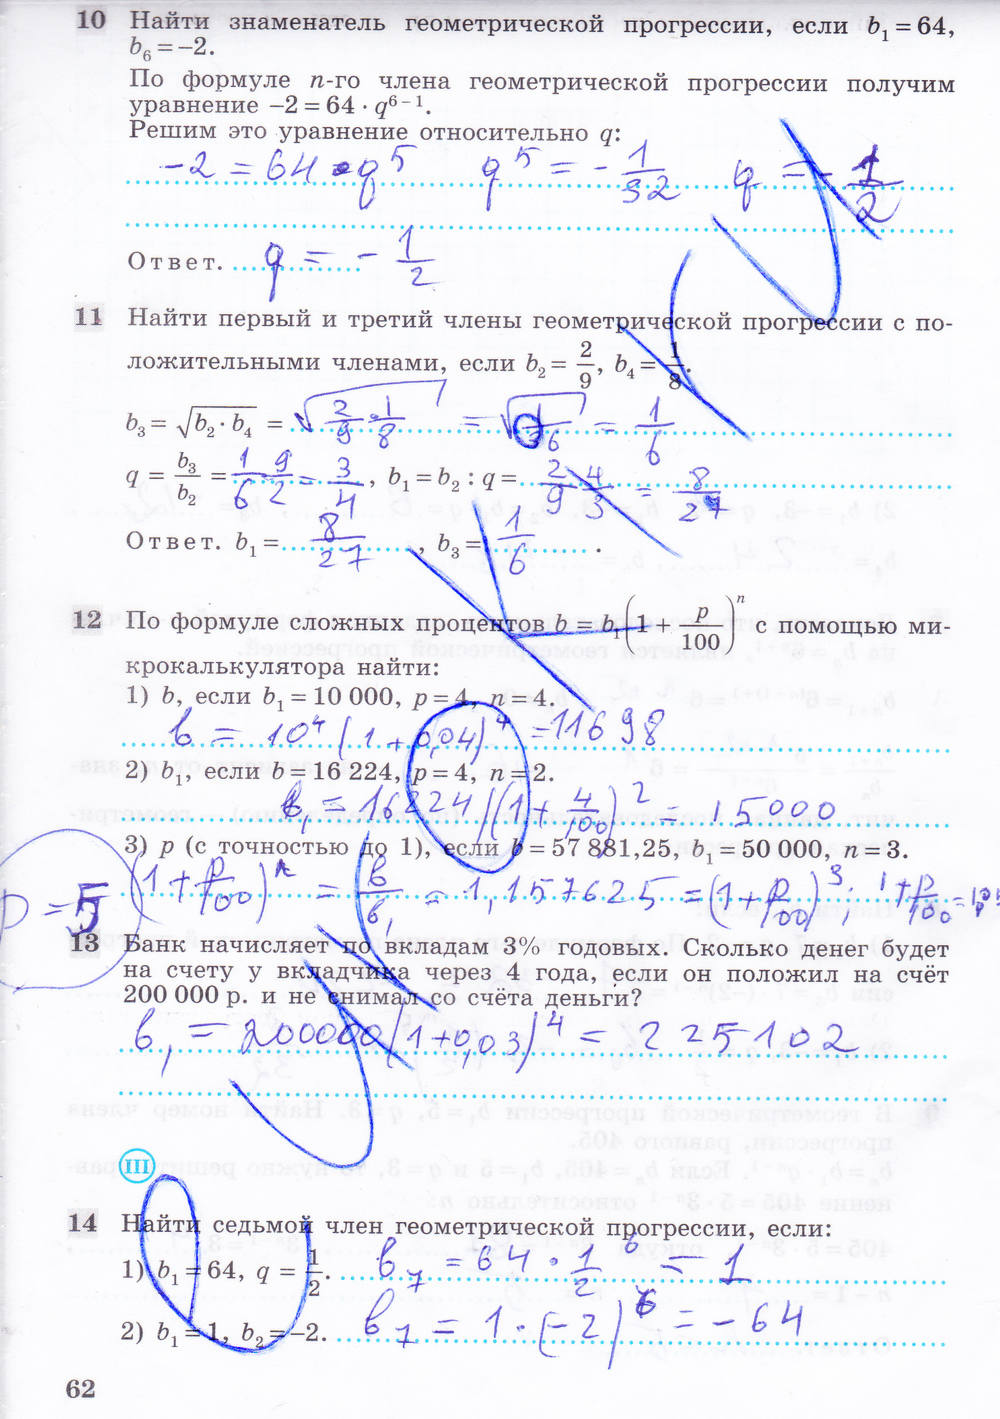 10 Найти знаменатель геометрической прогрессии, если b₁ = 64,
b₆ = –2.
По формуле n-го члена геометрической прогрессии получим
уравнение –2 = 64 · q⁶⁻¹.
Решим это уравнение относительно q:
–2 = 64 · q⁵ q⁵ = – 1/32 q = – 1/2
Ответ. q = – 1/2
11 Найти первый и третий члены геометрической прогрессии с по-
ложительными членами, если b₂ = 2/9, b₄ = 1/8.
b₃ = √(b₂ · b₄) = √(2/9 · 1/8) = √(1/36) = 1/6
q = b₃/b₂ = 1/6 · 9/2 = 3/4, b₁ = b₂ : q = 2/9 · 4/3 = 8/27
Ответ. b₁ = 8/27, b₃ = 1/6.
12 По формуле сложных процентов b = b₁(1 + p/100)ⁿ с помощью ми-
крокалькулятора найти:
1) b, если b₁ = 10 000, p = 4, n = 4.
b = 10⁴ (1 + 0,04)⁴ = 11698
2) b₁, если b = 16 224, p = 4, n = 2.
b₁ = 16224 / (1 + 4/100)² = 15000
3) p (с точностью до 1), если b = 57 881,25, b₁ = 50 000, n = 3.
(1 + p/100)ⁿ = b/b₁ = 1,157625 = (1 + p/100)³; 1 + p/100 = 1,05
p = 5
13 Банк начисляет по вкладам 3% годовых. Сколько денег будет
на счету у вкладчика через 4 года, если он положил на счёт
200 000 р. и не снимал со счёта деньги?
b₁ = 200000 (1 + 0,03)⁴ = 225102
III
14 Найти седьмой член геометрической прогрессии, если:
1) b₁ = 64, q = 1/2. b₇ = 64 · 1/2⁶ = 1
2) b₁ = 1, b₂ = –2. b₇ = 1 · (–2)⁶ = –64
62